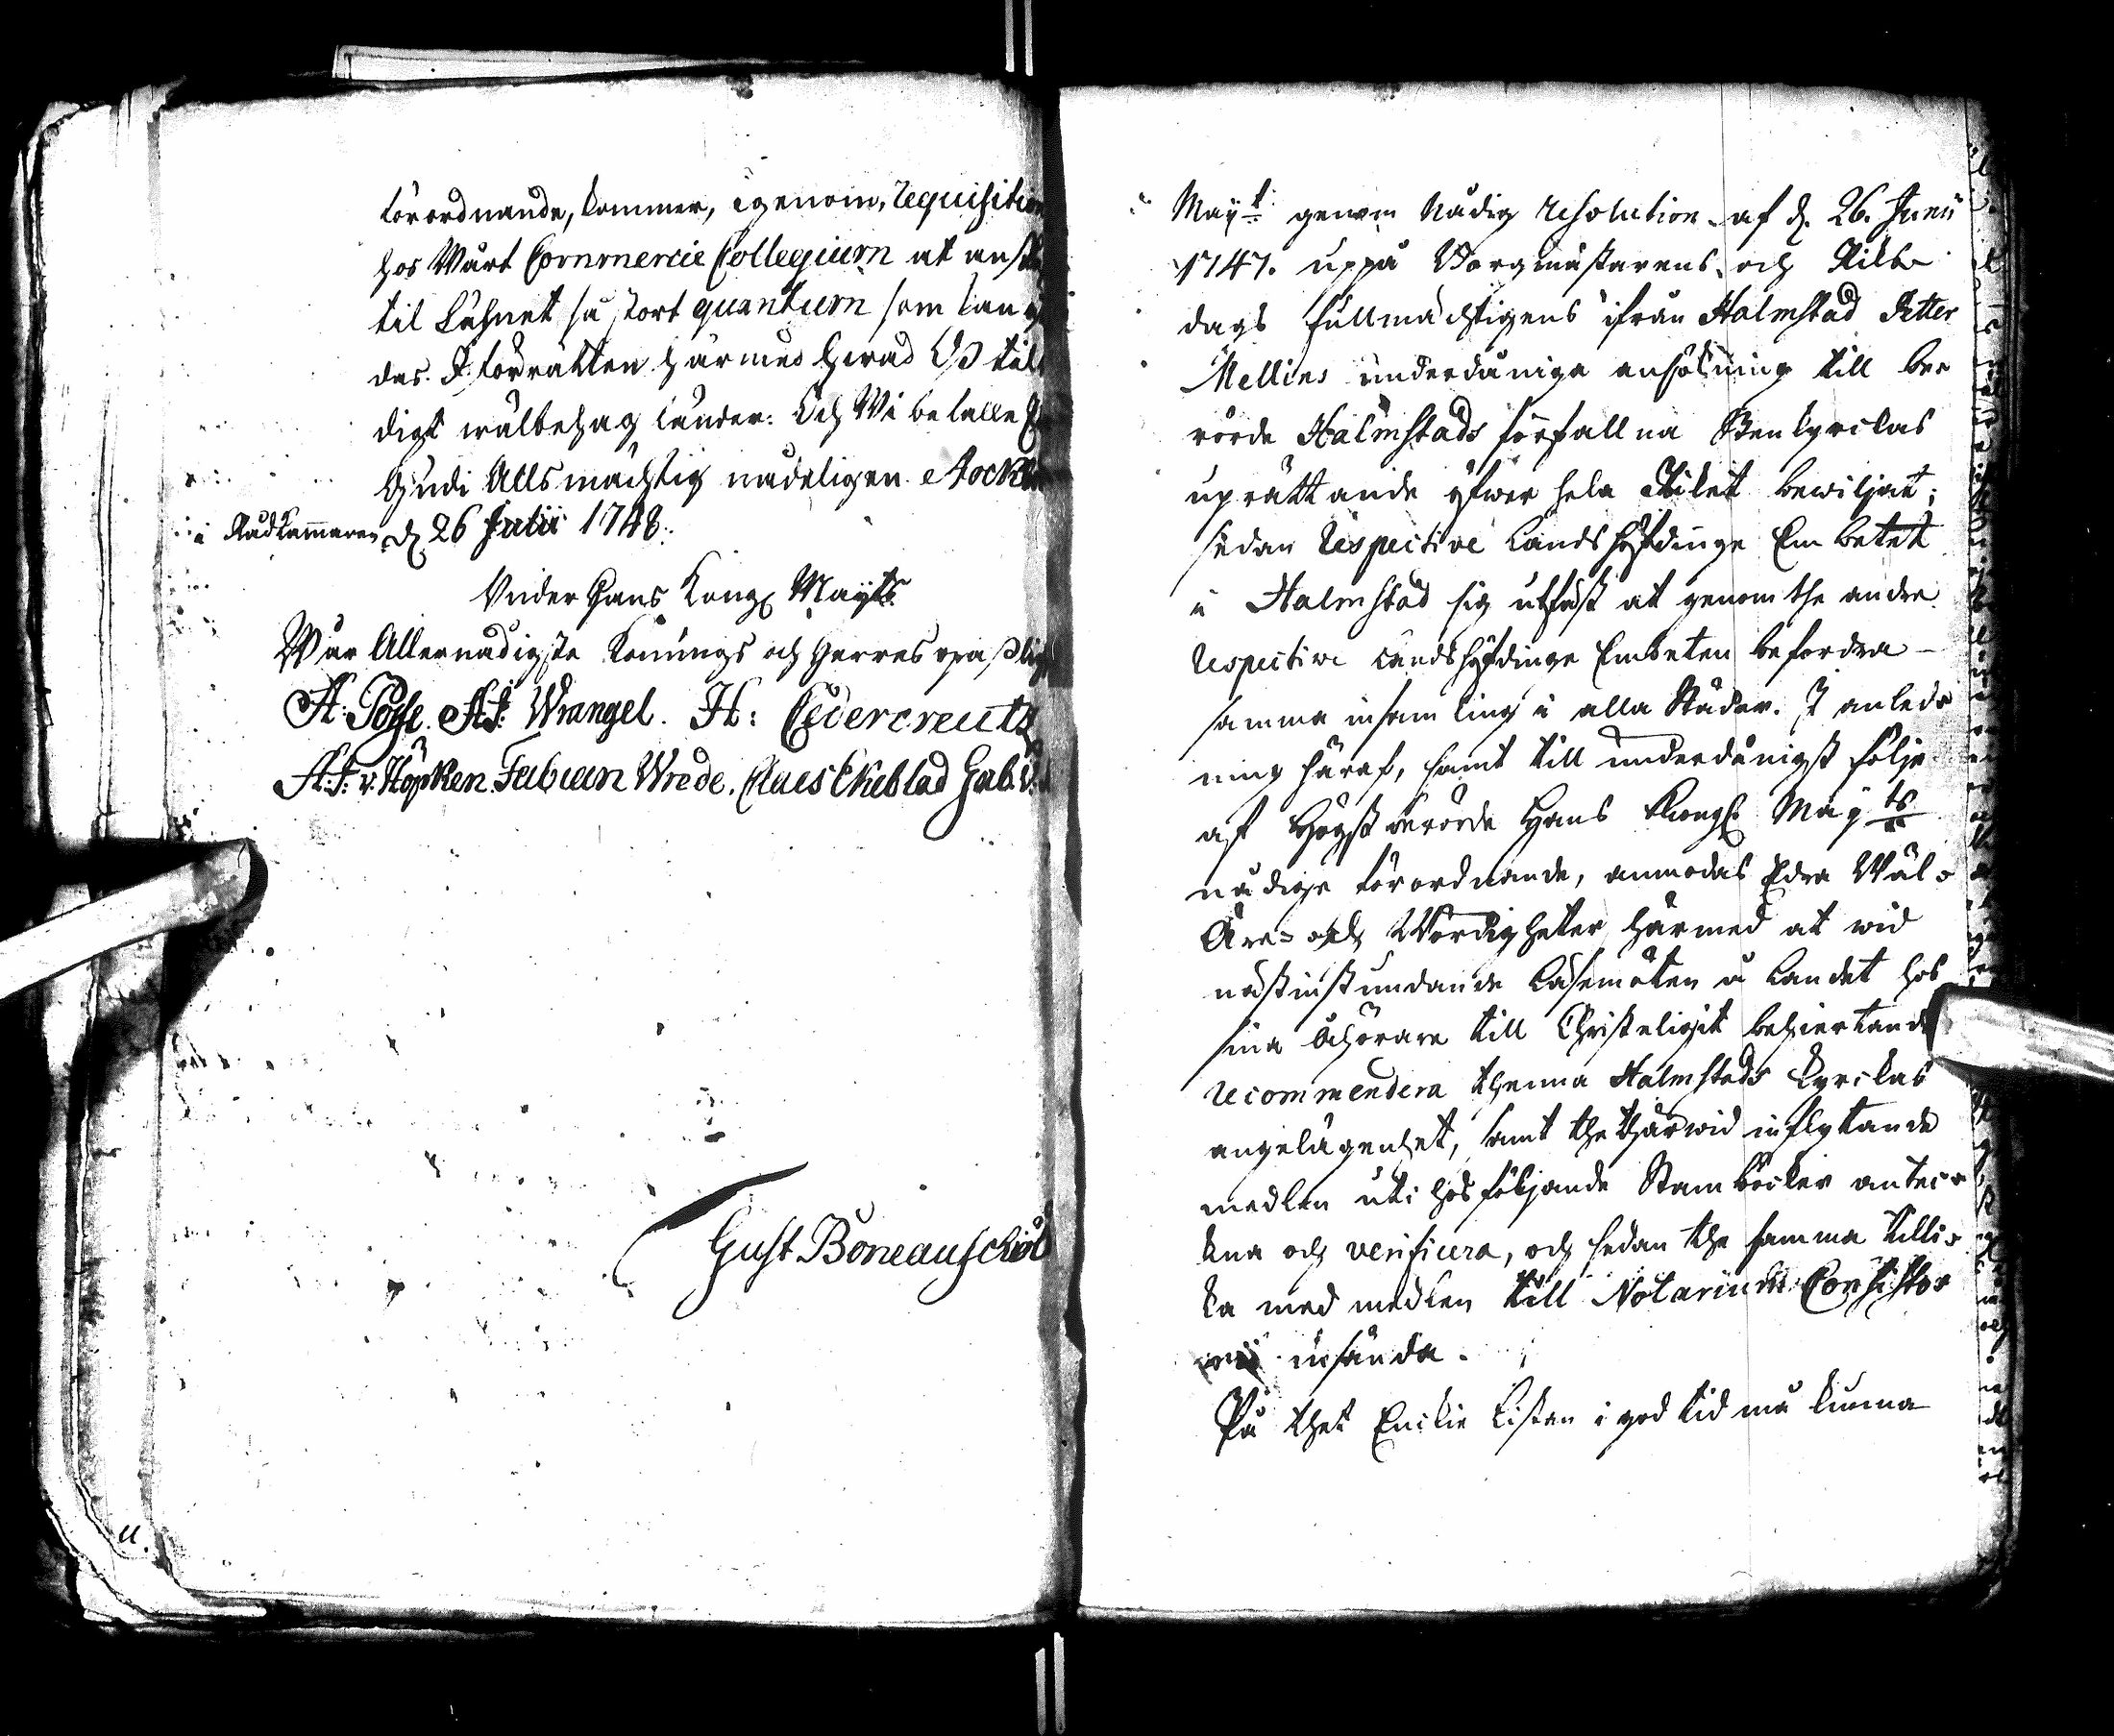 förordnande, kommer, igenom, requisition
hos Wårt Commercie Collegium at anst
til Lähnet så stort quantum som kan
des. I förrätten härmed hwad Oß til
digt wälbehag länder: Och Wi befalle E
Gudi Allsmächtig nådeligen. Stockh
i Rådkammaren d. 26 Julii 1748.
Under Hans Kongl Mayts
Wår Allernådigste Konungs och Herres opaßlig
A: Posse. A. J: Wrangel. H: Cedercreutz
A: J: v: Höpken. Fabian Wrede. Claes Ekeblad Gab. v:
Gust Boneauschiöl
u.
Mayt genom Nådig resolution af d. 26. Junii
1747. uppå Borgmästarens och Riks-
dags fullmächtigens ifrån Halmstad Petter
Mellins underdåniga ansökning till be-
rörde Halmstads förfallna Stenkyrckas
uprättande öfwer hela Riket bewiljat;
sedan respective Landshöfdinge Embetet
i Halmstad sig utfäst at genom the andre
respective Landshöfdinge Embeten befordra
samma insamling i alla Städer. I anled-
ning häraf, samt till underdånigst följe
af Högstberörde Hans Kongl Mayts
nådige förordnande, anmodas Edra Wäl-
Äre- och Wördigheter härmed at wid
nästinstundande Läsemöten å Landet hos
sina åhörare till Christeligit behiertande
recommendera thenna Halmstads Kyrckas
angelägenhet, samt the thärwid inflytande
medlen uti hosföljande Stamböcker anteck-
na och verificera, och sedan the samma tilli-
ka med medlen till Notarium Consisto-
rii insända.
På thet Enckie listan i god tid må kunna